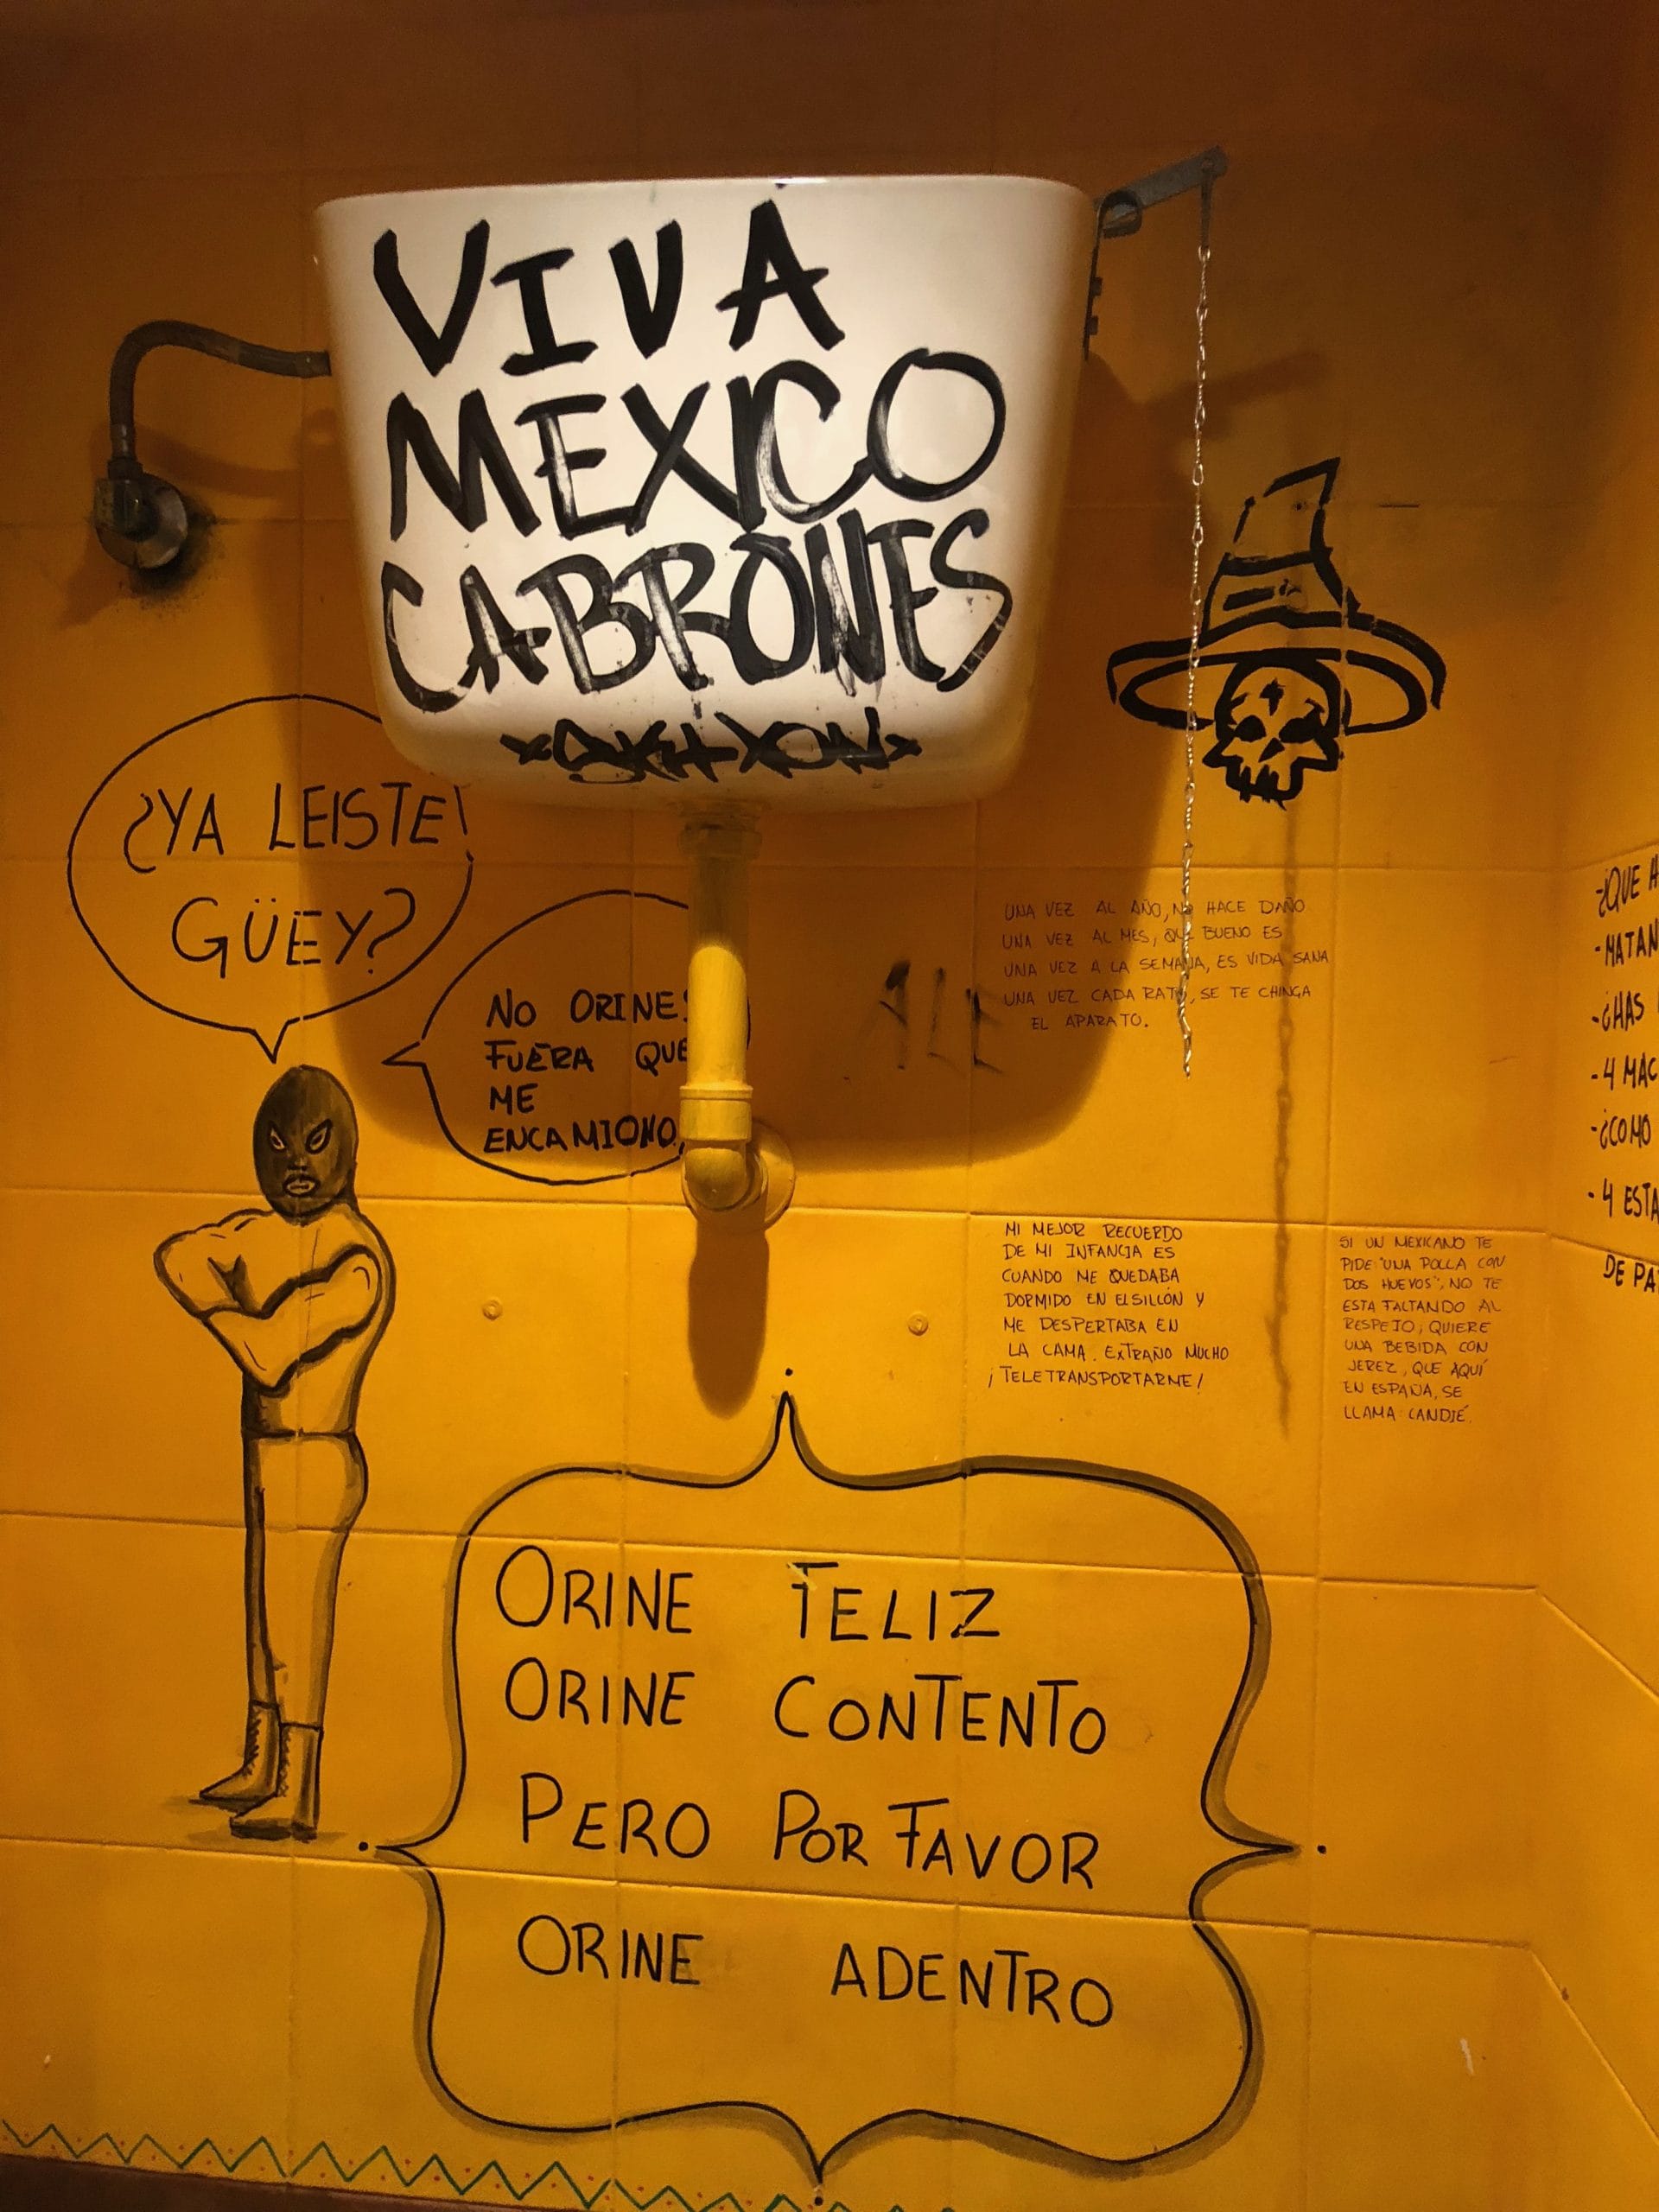 VIVA
MEXICO
CABRONES
¿YA LEISTE!
GÜEY?
NO ORINES
FUERA QUE
ME
ENCAMIONO
ALE
UNA VEZ AL AÑO, NO HACE DAÑO
UNA VEZ AL MES, QUE BUENO ES
UNA VEZ A LA SEMANA, ES VIDA SANA
UNA VEZ CADA RATO, SE TE CHINGA
EL APARATO.
MI MEJOR RECUERDO
DE MI INFANCIA ES
CUANDO ME QUEDABA
DORMIDO EN EL SILLÓN Y
ME DESPERTABA EN
LA CAMA. EXTRAÑO MUCHO
¡TELETRANSPORTARME!
SI UN MEXICANO TE
PIDE "UNA POLLA CON
DOS HUEVOS", NO TE
ESTA FALTANDO AL
RESPETO; QUIERE
UNA BEBIDA CON
JEREZ, QUE AQUÍ
EN ESPAÑA, SE
LLAMA: CANDIÉ.
-¿QUE H
-MATAN
-¿HAS
-4 MAC
-¿COMO
-4 ESTA
DE PA
ORINE FELIZ
ORINE CONTENTO
PERO POR FAVOR
ORINE ADENTRO